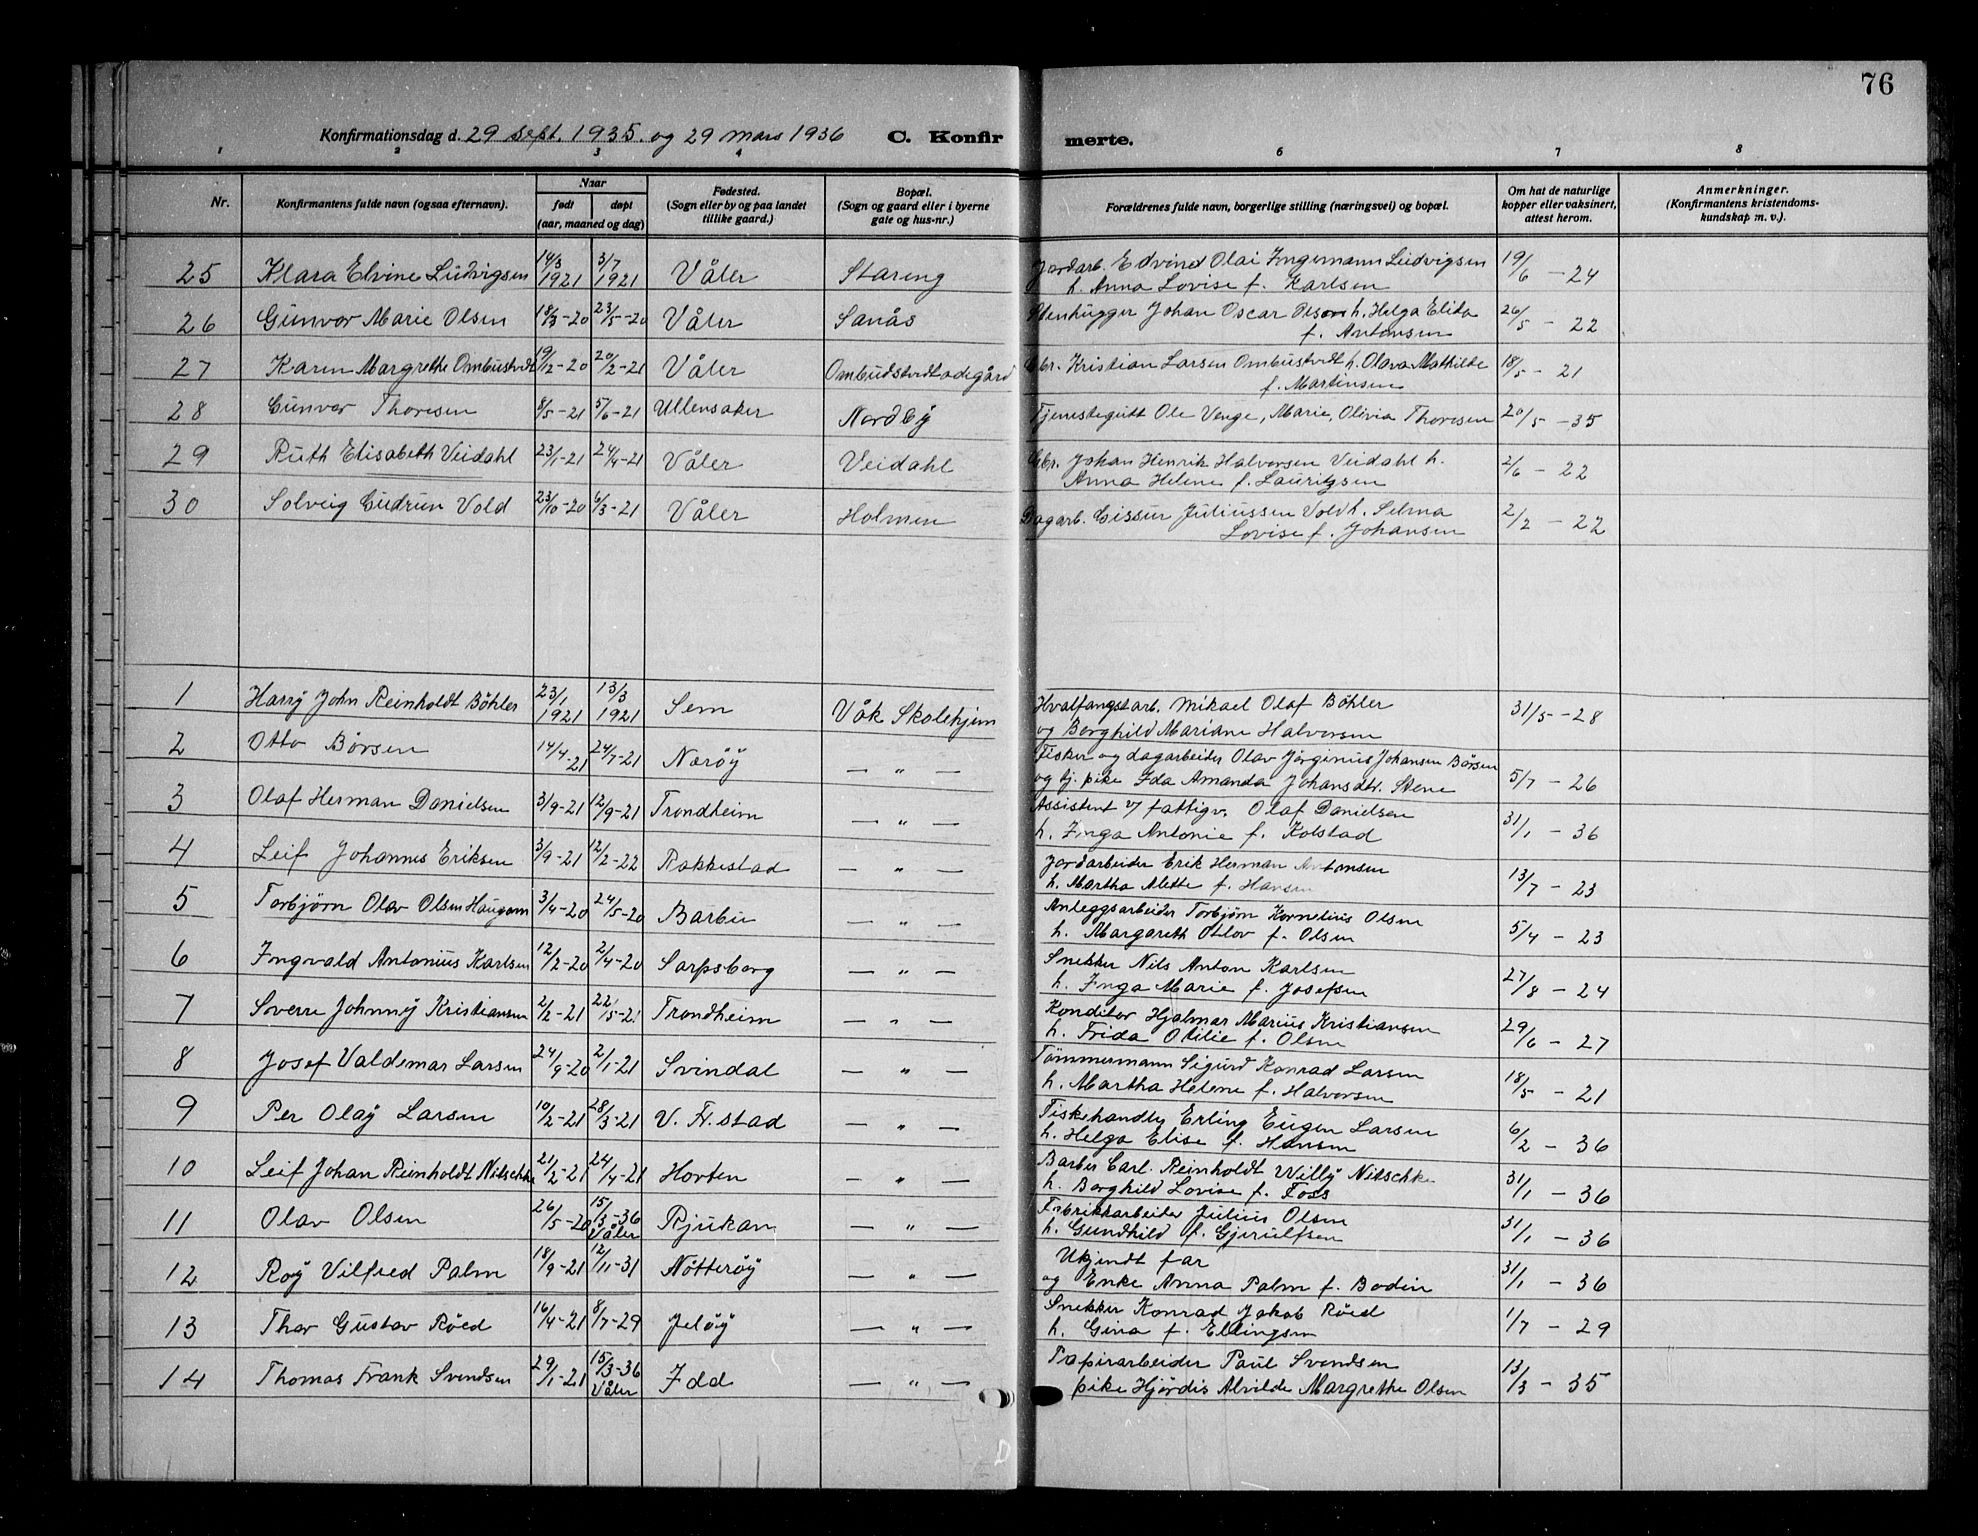 76
Konfirmationsdag d. 29 sept. 1935 og 29 mars 1936 C. Konfirmerte.
1 2 3 4 6 7 8
Nr. Konfirmantens fulde navn (ogsaa efternavn). Naar født døpt (aar, maaned og dag) Fødested. (Sogn eller by og paa landet tillike gaard.) Bopæl. (Sogn og gaard eller i byerne gate og hus-nr.) Forældrenes fulde navn, borgerlige stilling (næringsvei) og bopæl. Om hat de naturlige kopper eller vaksinert, attest herom. Anmerkninger. (Konfirmantens kristendomskundskap m. v.).
25 Klara Elvine Ludvigsen 14/3 1921 3/7 1921 Våler Stareng Jordarb. Edvind Olai Ingemann Ludvigsen 19/6 - 24
h. Anna Lovise f. Karlsen
26 Gunvor Marie Olsen 18/3-20 23/5-20 Våler Sanås Stenhugger Johan Oscar Olsen h. Helga Elida 26/5 - 22
f. Antonsen
27 Karen Margrethe Ombustvedt 19/2-20 20/2-21 Våler Ombudstvedt ødegård Gbr. Kristian Larsen Ombustvedt h. Olava Mathilde 18/5 - 21
f. Martinsen
28 Gunvor Thoresen 8/5-21 5/6-21 Ullensaker Nordby Tjenestegutt Ole Venge, Marie, Olivia Thoresen 20/5 - 35
29 Ruth Elisabeth Veidahl 23/1-21 24/4-21 Våler Veidahl Gbr. Johan Henrik Halvorsen Veidahl h. 2/6 - 22
Anna Helene f. Lauritzsen
30 Solveig Gudrun Vold 23/10-20 6/3-21 Våler Holmen Dagarb. Gissur Juliussen Vold h. Selma 2/2 - 22
Lovise f. Johansen
1 Harry John Reinholdt Böhler 23/1 1921 13/3 1921 Sem Våk Skolehjem Hvalfangstarb. Mikael Olaf Böhler 31/5 - 28
og Borghild Mariane Halvorsen
2 Otto Börsen 14/4-21 24/7-21 Nærøy — " — Fisker og dagarbeider Olav Jörginius Johansen Börsen 5/7 - 26
og tj. pike Ida Amanda Johansdtr. Stene
3 Olaf Herman Danielsen 3/9-21 12/9-21 Trondheim — " — Assistent v/ fattigv. Olaf Danielsen 31/1 - 36
h. Inga Antonie f. Kolstad
4 Leif Johannes Eriksen 3/9-21 12/2-22 Rakkestad — " — Jordarbeider Erik Herman Antonsen 13/7 - 23
h. Martha Alette f. Hansen
5 Torbjörn Olav Olsen Haugom 3/4-20 24/5-20 Barbu — " — Anleggsarbeider Torbjörn Kornelius Olsen 5/4 - 23
h. Margareth Otlov f. Olsen
6 Ingvald Antonius Karlsen 12/2-20 2/4-20 Sarpsborg — " — Snekker Nils Anton Karlsen 27/8 - 24
h. Inga Marie f. Josefsen
7 Sverre Johnny Kristiansen 2/2-21 22/5-21 Trondheim — " — Konditor Hjalmar Marius Kristiansen 29/6 - 27
h. Frida Otilie f. Olsen
8 Josef Valdemar Larsen 24/9-20 2/1-21 Svindal — " — Tömmermann Sigurd Konrad Larsen 18/5 - 21
h. Martha Helene f. Halvorsen
9 Per Olaÿ Larsen 10/2-21 28/3-21 V. Fr.stad — " — Fiskehandler Erling Eugen Larsen 6/2 - 36
h. Helga Elise f. Hansen
10 Leif Johan Reinholdt Nitschke 21/2-21 24/4-21 Horten — " — Barber Carl Reinholdt Willy Nitschke 31/1 - 36
h. Borghild Lovise f. Foss
11 Olav Olsen 26/5-20 15/3-36 Våler Rjukan — " — Fabrikkarbeider Julius Olsen 31/1 - 36
h. Gundhild f. Gjerulfsen
12 Roy Vilfred Palm 18/9-21 12/11-31 Nötteröy — " — Ukjendt far 31/1 - 36
og Enke Anna Palm f. Bodin
13 Thor Gustav Röed 16/4-21 8/7-29 Jelöy — " — Snekker Konrad Jakob Röed 1/7 - 29
h. Gina f. Ellingsen
14 Thomas Frank Svendsen 29/1-21 15/3-36 Våler Idd — " — Papirarbeider Paul Svendsen 13/3 - 35
pike Hjördis Alvilde Margrethe Olsen